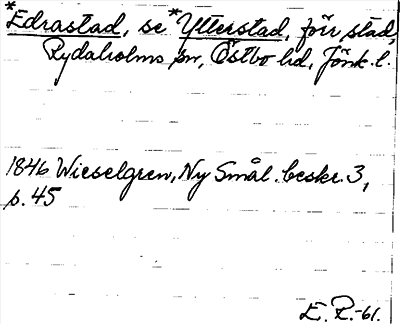 *Edrastad, se *Ytterstad, förr stad,
Rydaholms sn, Östbo hd, Jönk. l.
1846 Wieselgren, Ny Smål. beskr. 3,
p. 45
E. R.-61.